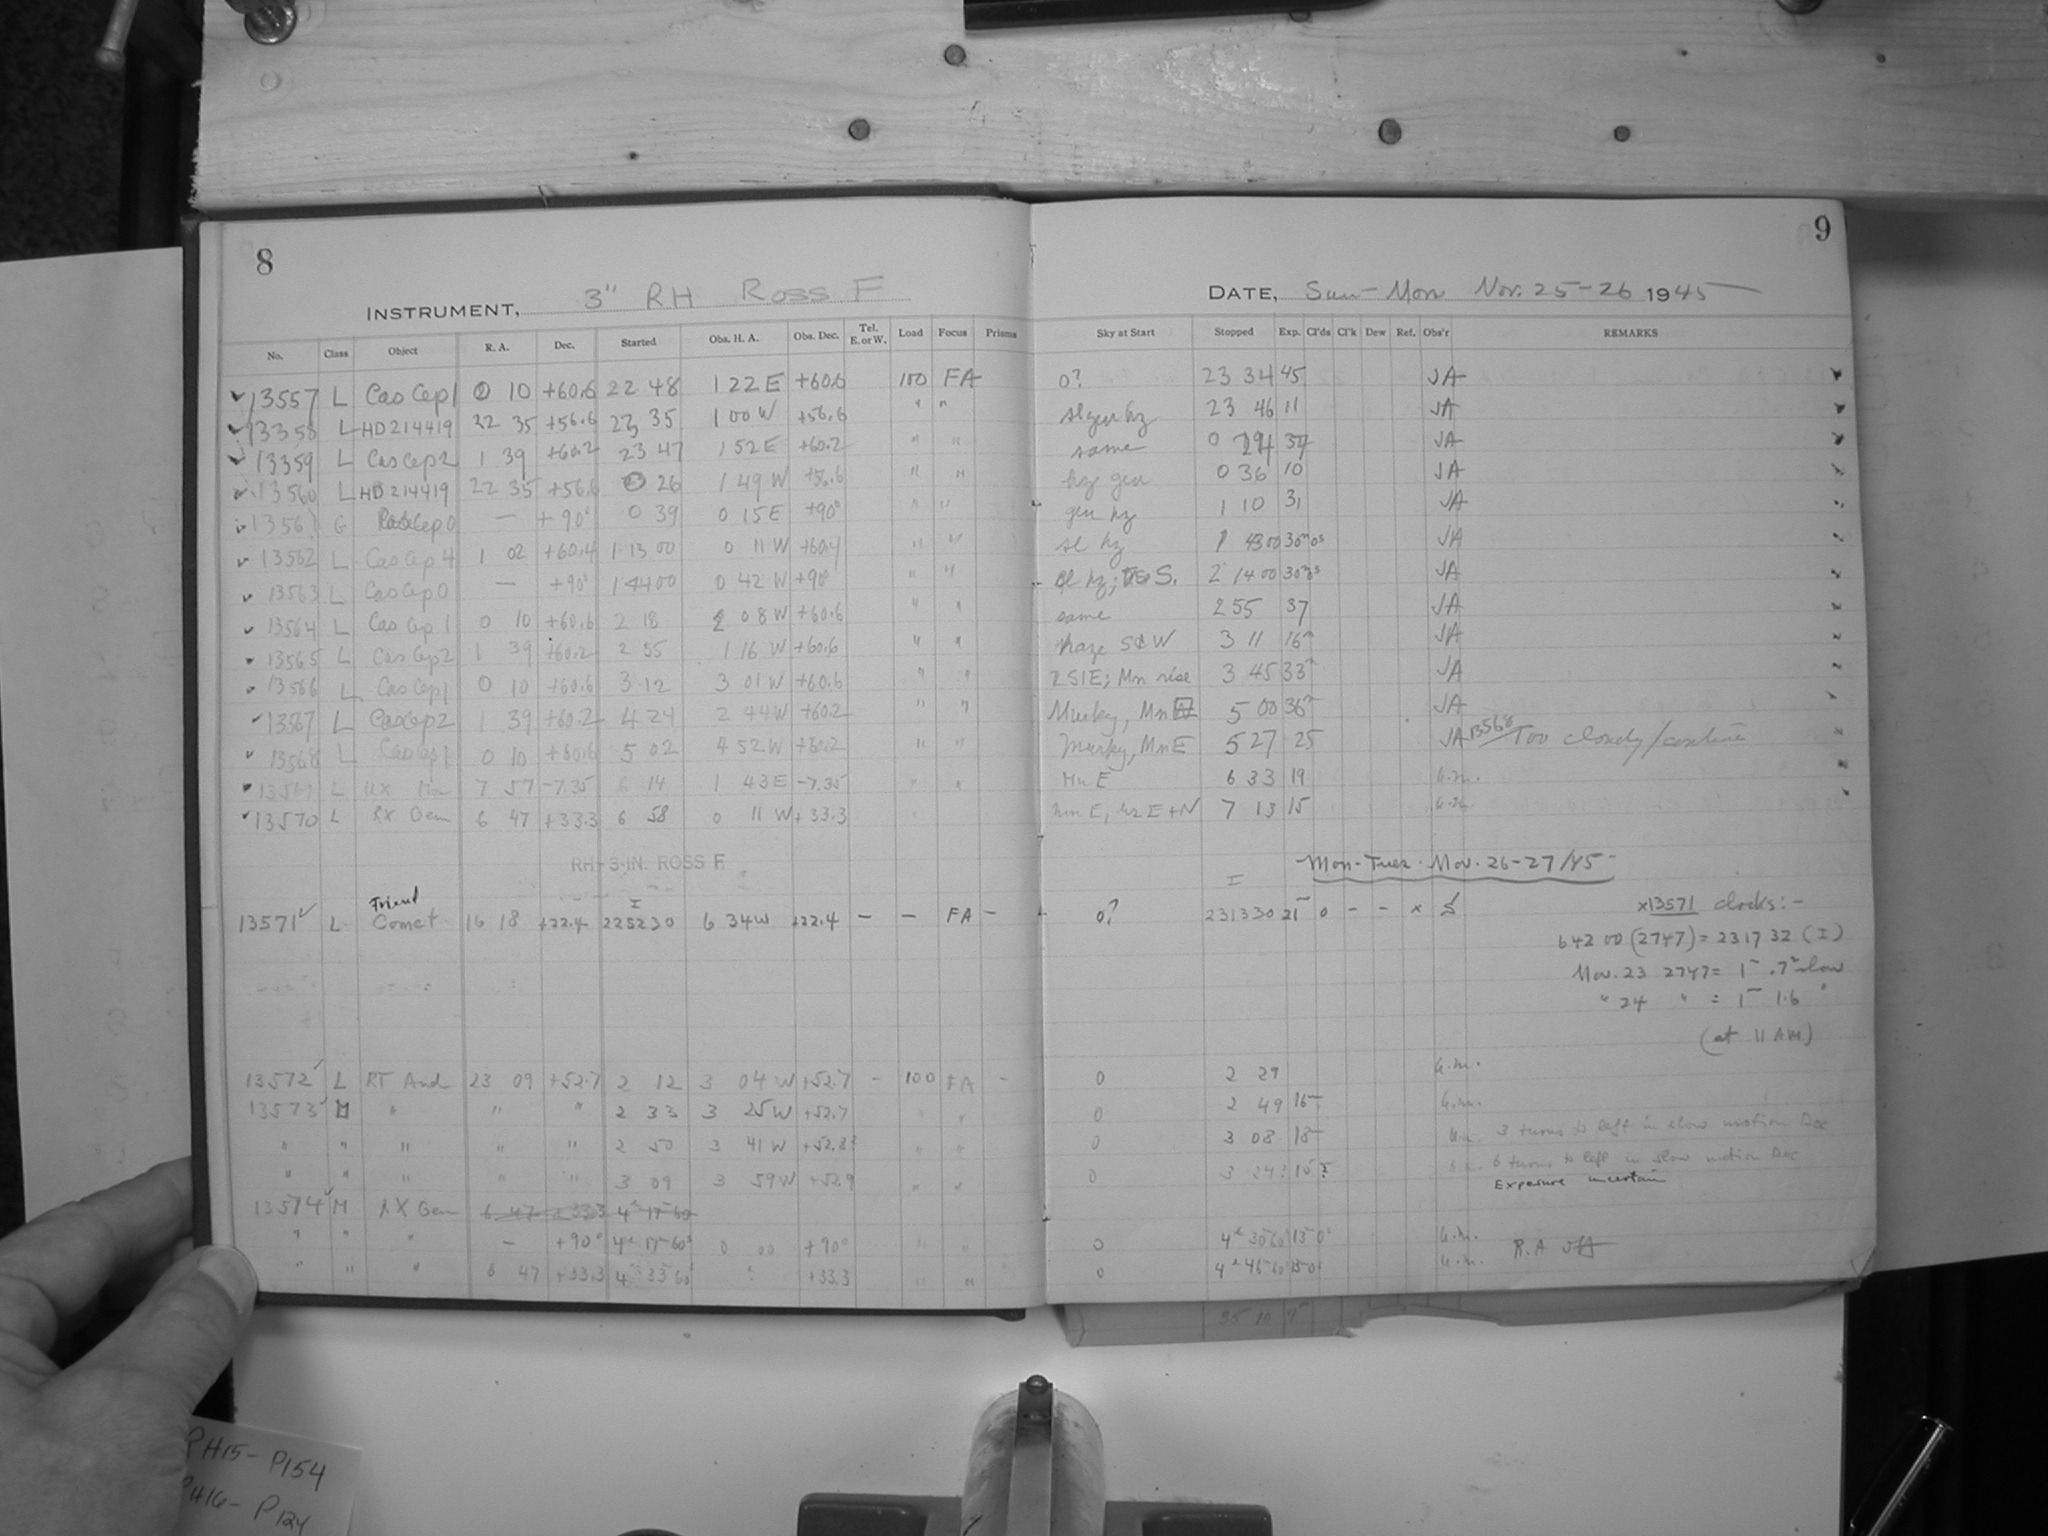 8
INSTRUMENT, 3" RH Ross F
No. Class Object R. A. Dec. Started Obs. H. A. Obs. Dec. Tel. E. or W. Load Focus Prisms
13557 L CasCep1 0 10 +60.6 22 48 1 22 E +60.6 100 FA
13358 L HD214419 22 35 +56.6 23 35 1 00 W +56.6 " "
13359 L CasCep2 1 39 +60.2 23 47 1 52 E +60.2 " "
13560 L HD214419 22 35 +56.6 0 26 1 49 W +56.6 " "
13561 G CasCep0 — +90° 0 39 0 15 E +90° " "
13562 L CasCep4 1 02 +60.4 1 13 00 0 11 W +60.4 " "
13563 L CasCep0 — +90° 1 44 00 0 42 W +90° " "
13564 L CasCep1 0 10 +60.6 2 18 2 08 W +60.6 " "
13565 L CasCep2 1 39 +60.2 2 55 1 16 W +60.6 " "
13566 L CasCep1 0 10 +60.6 3 12 3 01 W +60.6 " "
13567 L CasCep2 1 39 +60.2 4 24 2 44 W +60.2 " "
13568 L CasCep1 0 10 +60.6 5 02 4 52 W +60.2 " "
13569 L UX Mon 7 57 -7.35 6 14 1 43 E -7.35 " "
13570 L RX Gem 6 47 +33.3 6 58 0 11 W +33.3
RH-3-IN. ROSS F.
I
13571 L Friend Comet 16 18 +22.4 22 52 30 6 34 W +22.4 – – FA –
13572 L RT And 23 09 +52.7 2 12 3 04 W +52.7 – 100 FA –
13573 M " " " 2 33 3 25 W +52.7 " "
" " " " " 2 50 3 41 W +52.8? " "
" " " " " 3 09 3 59 W +52.9 " "
13574 M RX Gem 6 47 +33.3
" " " – +90° 0 00 +90° " "
" " " 6 47 +33.3 +33.3 " "
9
DATE, Sun-Mon Nov. 25-26 1945
Sky at Start Stopped Exp. Cl'ds Cl'k Dew Ref. Obs'r REMARKS
0? 23 34 45 JA
sl gen hz 23 46 11 JA
same 0 37 JA
hz gen 0 36 10 JA
gen hz 1 10 31 JA
sl hz 1 43 00 30m 0s JA
sl hz; S. 2 14 00 30m 0s JA
same 2 55 37 JA
haze S&W 3 11 16m JA
; Mn rise 3 45 33m JA
Murky, Mn 5 00 36m JA
Murky, Mn E 5 27 25 JA 13568 Too cloudy/
Mn E 6 33 19
mn E, hz E+N 7 13 15
Mon-Tues. Nov. 26-27/45
I
0? 23 13 30 21m 0 – – x
x13571 clocks:-
6 42 00 (2747) = 23 17 32 (I)
Nov. 23 2747 = 1m .7s slow
" 24 " = 1m 1.6 "
(at 11 AM)
0 2 29
0 2 49 16m
0 3 08 18m 3 turns to left in slow motion Dec
0 3 24? 15? 6 turns to left in slow motion Dec
Exposure uncertain
0 R.A off
0
35 10 7
PH15- P154
PH16- P124